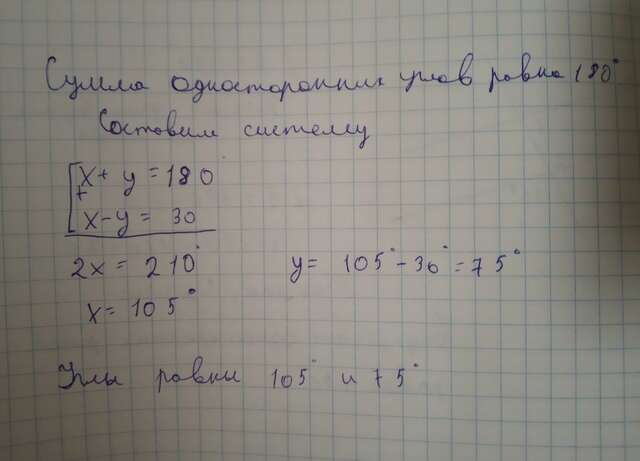 Сумма односторонних углов равна 180°
Составим систему
x + y = 180°
+
x - y = 30
2x = 210°
y = 105° - 30° = 75°
x = 105°
Углы равны 105° и 75°